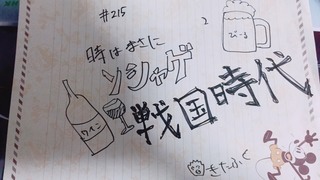 #215
2
びーる
時はまさに
ソシャゲ
戦国時代
ワイン
きたふく